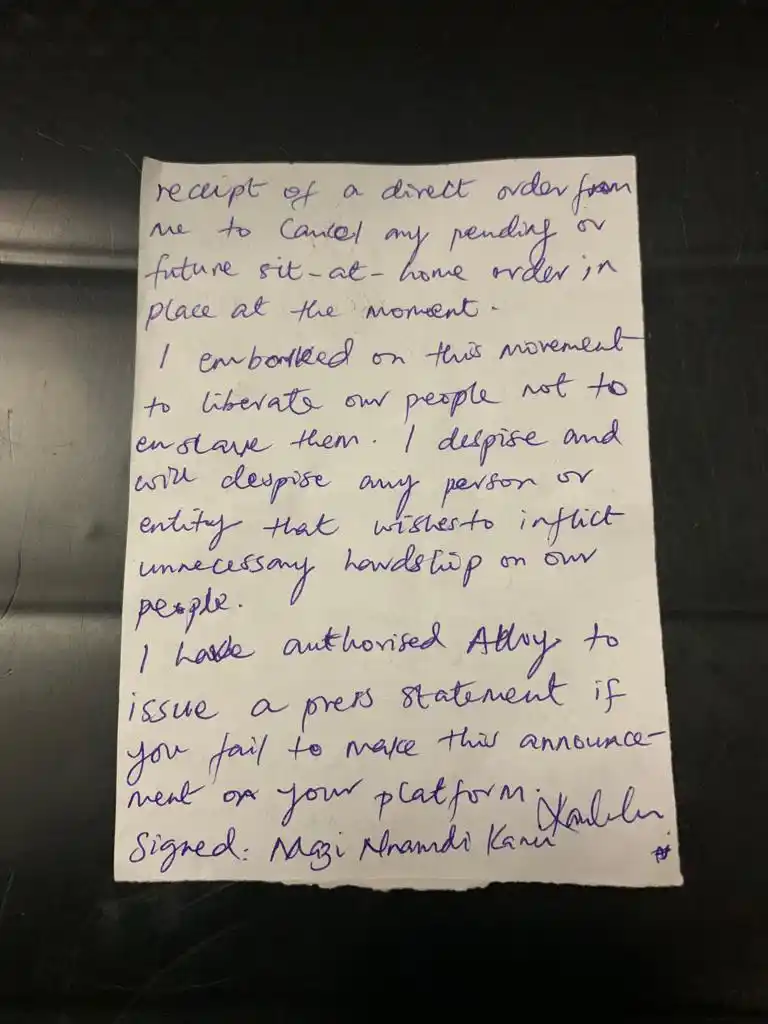 receipt of a direct order from
me to Cancel any pending or
future sit-at-home order in
place at the moment.
I embarked on this movement
to liberate our people not to
enslave them. I despise and
will despise any person or
entity that wishes to inflict
unnecessary hardship on our
people.
I have authorised to
issue a press statement if
you fail to make this announce-
ment on your platform.
Signed: Mazi Nnamdi Kanu